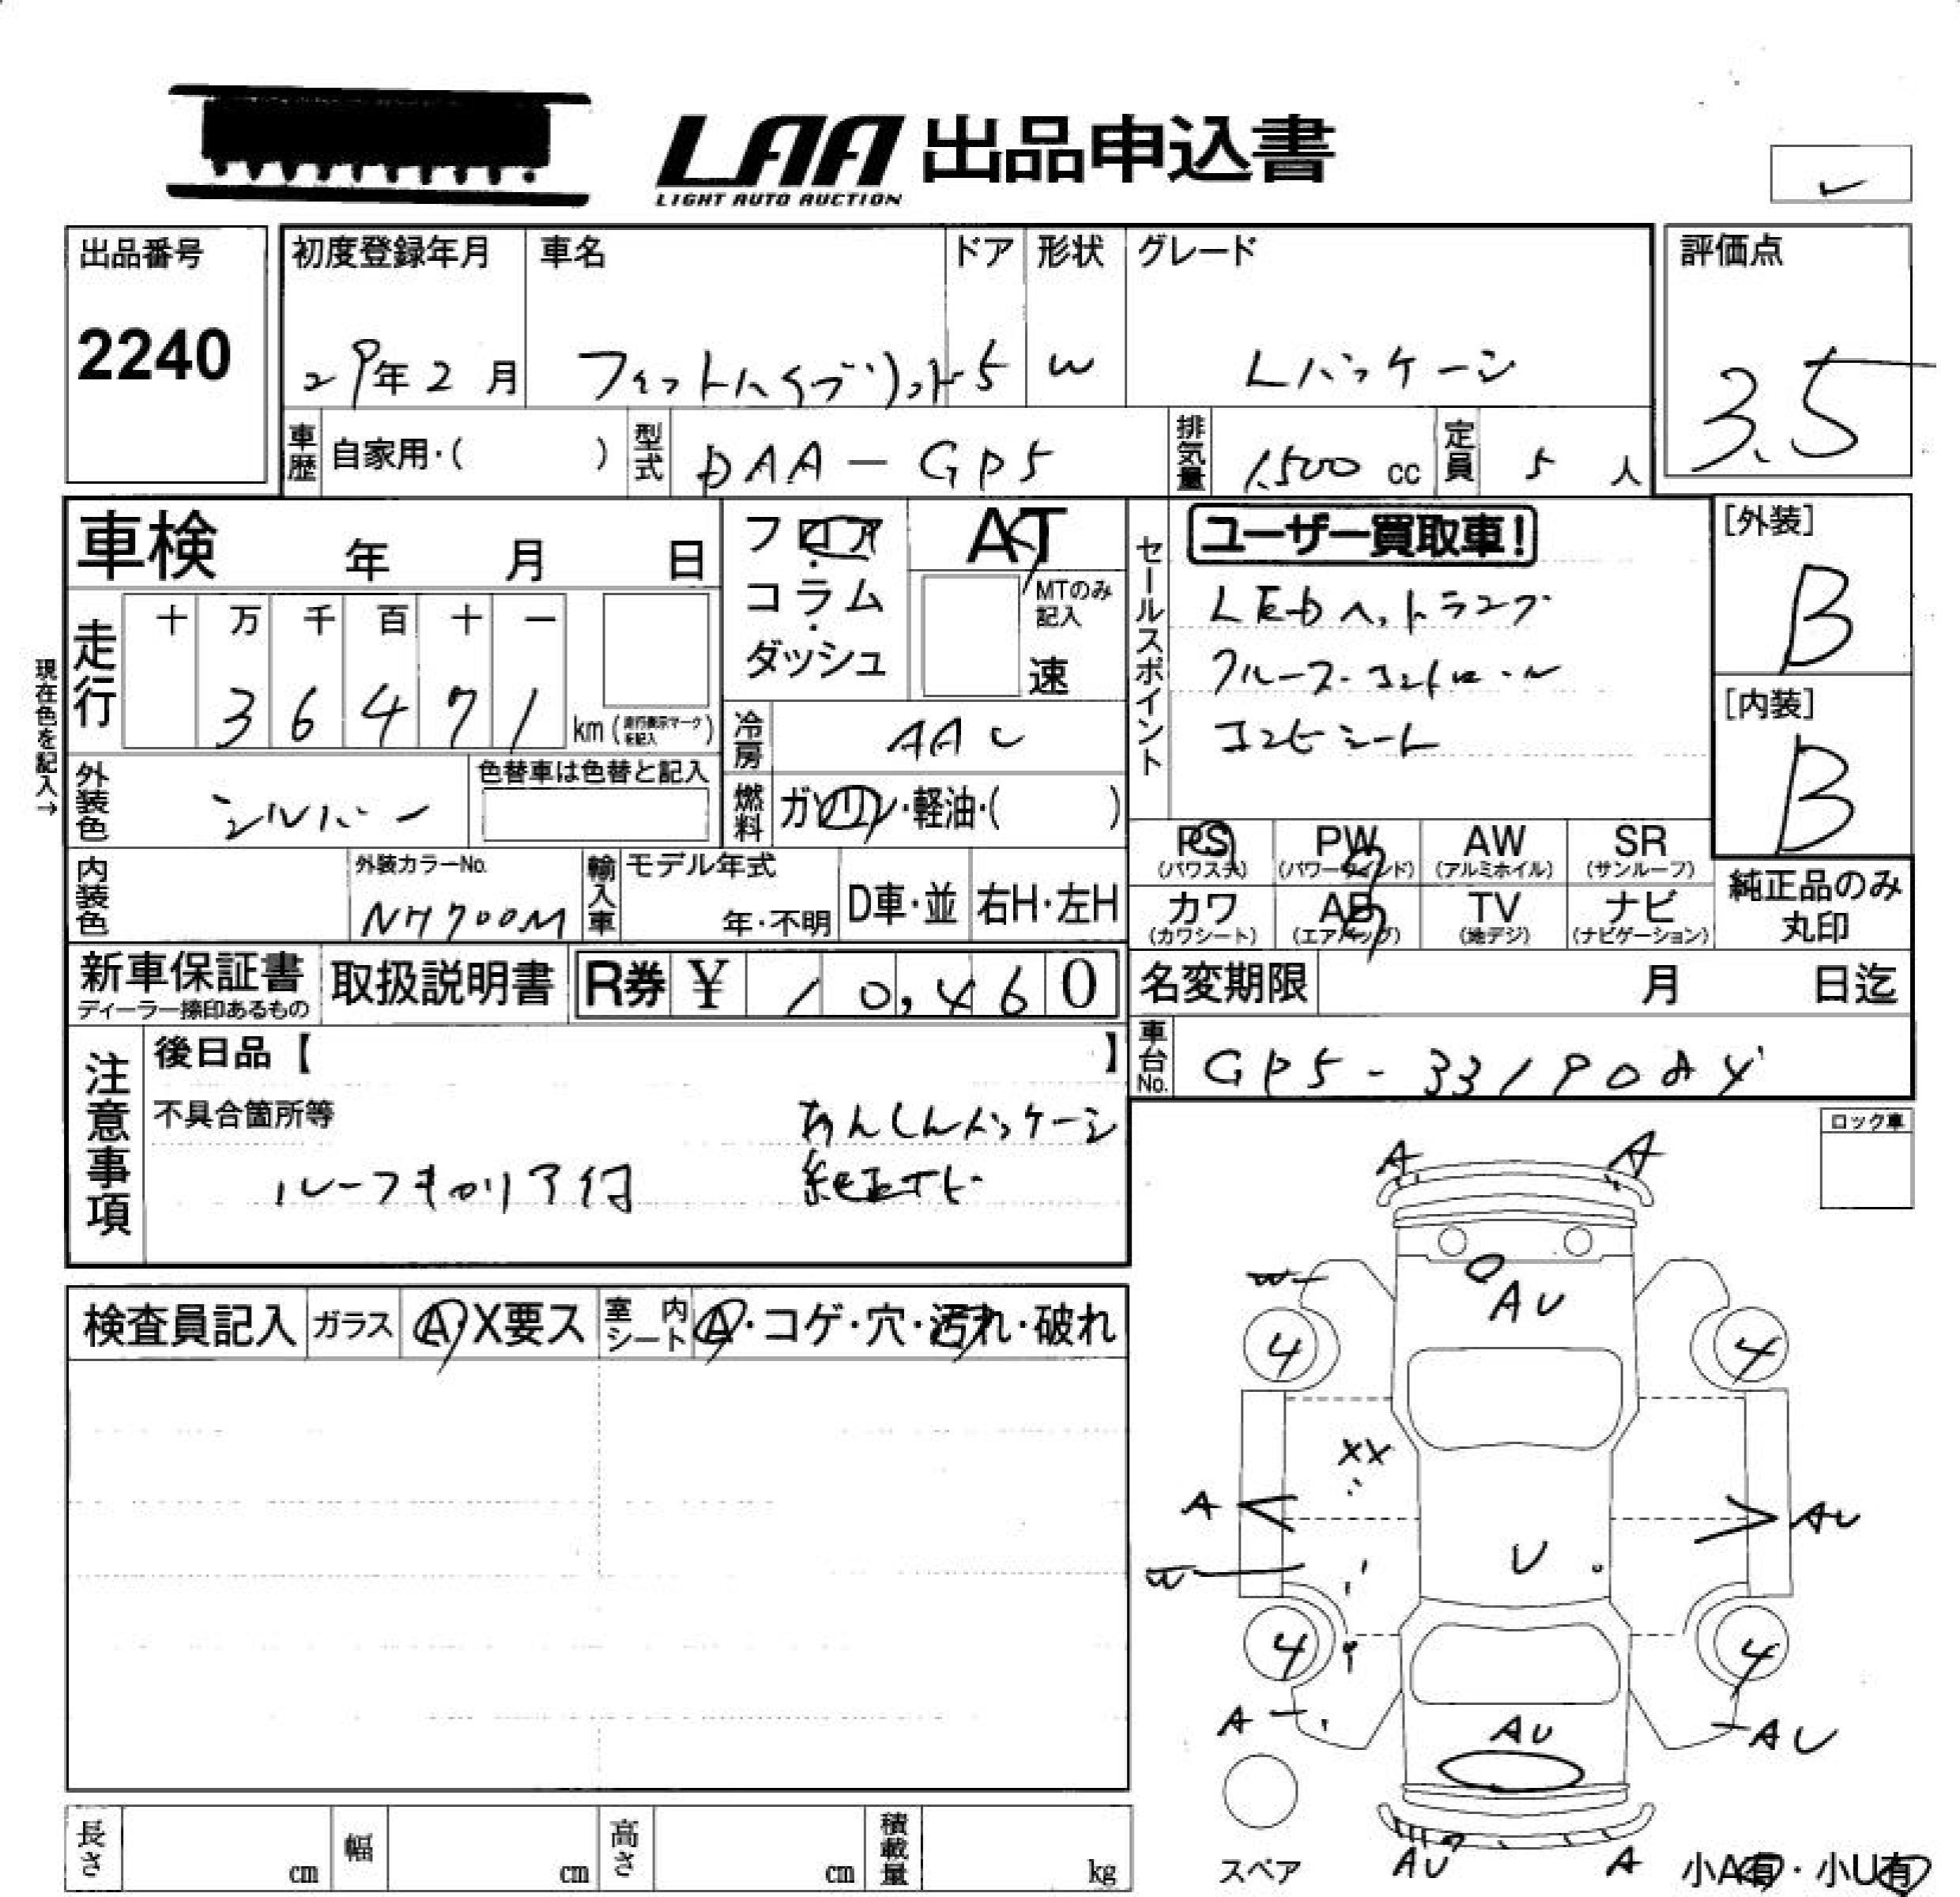 LAA 出品申込書
LIGHT AUTO AUCTION
出品番号
2240
初度登録年月
29年2月
車名
フィットハイブリット
ドア
5
形状
W
グレード
Lパッケージ
評価点
3.5
車歴 自家用・( )
型式 DAA-GP5
排気量 1,500 cc
定員 5 人
車検 年 月 日
フロア・コラム・ダッシュ
AT
MTのみ記入
速
セールスポイント
ユーザー買取車!
LEDヘットランプ
クルーズ・コントロール
コンビシート
[外装]
B
[内装]
B
現在色を記入→
走行
十 万 千 百 十 一
3 6 4 7 1 km (走行表示マークを記入)
冷房 AAC
外装色 シルバー
色替車は色替と記入
燃料 ガソリン・軽油・( )
PS (パワステ)
PW (パワーウインド)
AW (アルミホイル)
SR (サンルーフ)
カワ (カワシート)
AB (エアバッグ)
TV (地デジ)
ナビ (ナビゲーション)
純正品のみ丸印
内装色
外装カラーNo.
NH700M
輸入車
モデル年式
年・不明
D車・並
右H・左H
新車保証書
ディーラー捺印あるもの
取扱説明書
R券 ¥ 10,460
名変期限 月 日迄
車台No. GP5-33190
注意事項
後日品【 】
不具合箇所等
あんしんパッケージ
ルーフキャリア付
ロック車
検査員記入
ガラス A・X要ス
室内シート A・コゲ・穴・汚れ・破れ
A A
AU
W
4 4
XX
A AU
W
U
4 4
A AU AU
スペア
AU A
小A有・小U有
長さ cm
幅 cm
高さ cm
積載量 kg